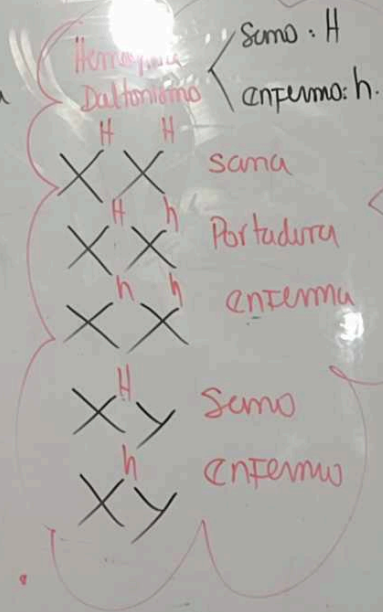 Hemofilia
Daltonismo
Sano: H
enfermo: h.
X^H X^H sana
X^H X^h Portadora
X^h X^h enferma
X^H y Sano
X^h y enfermo